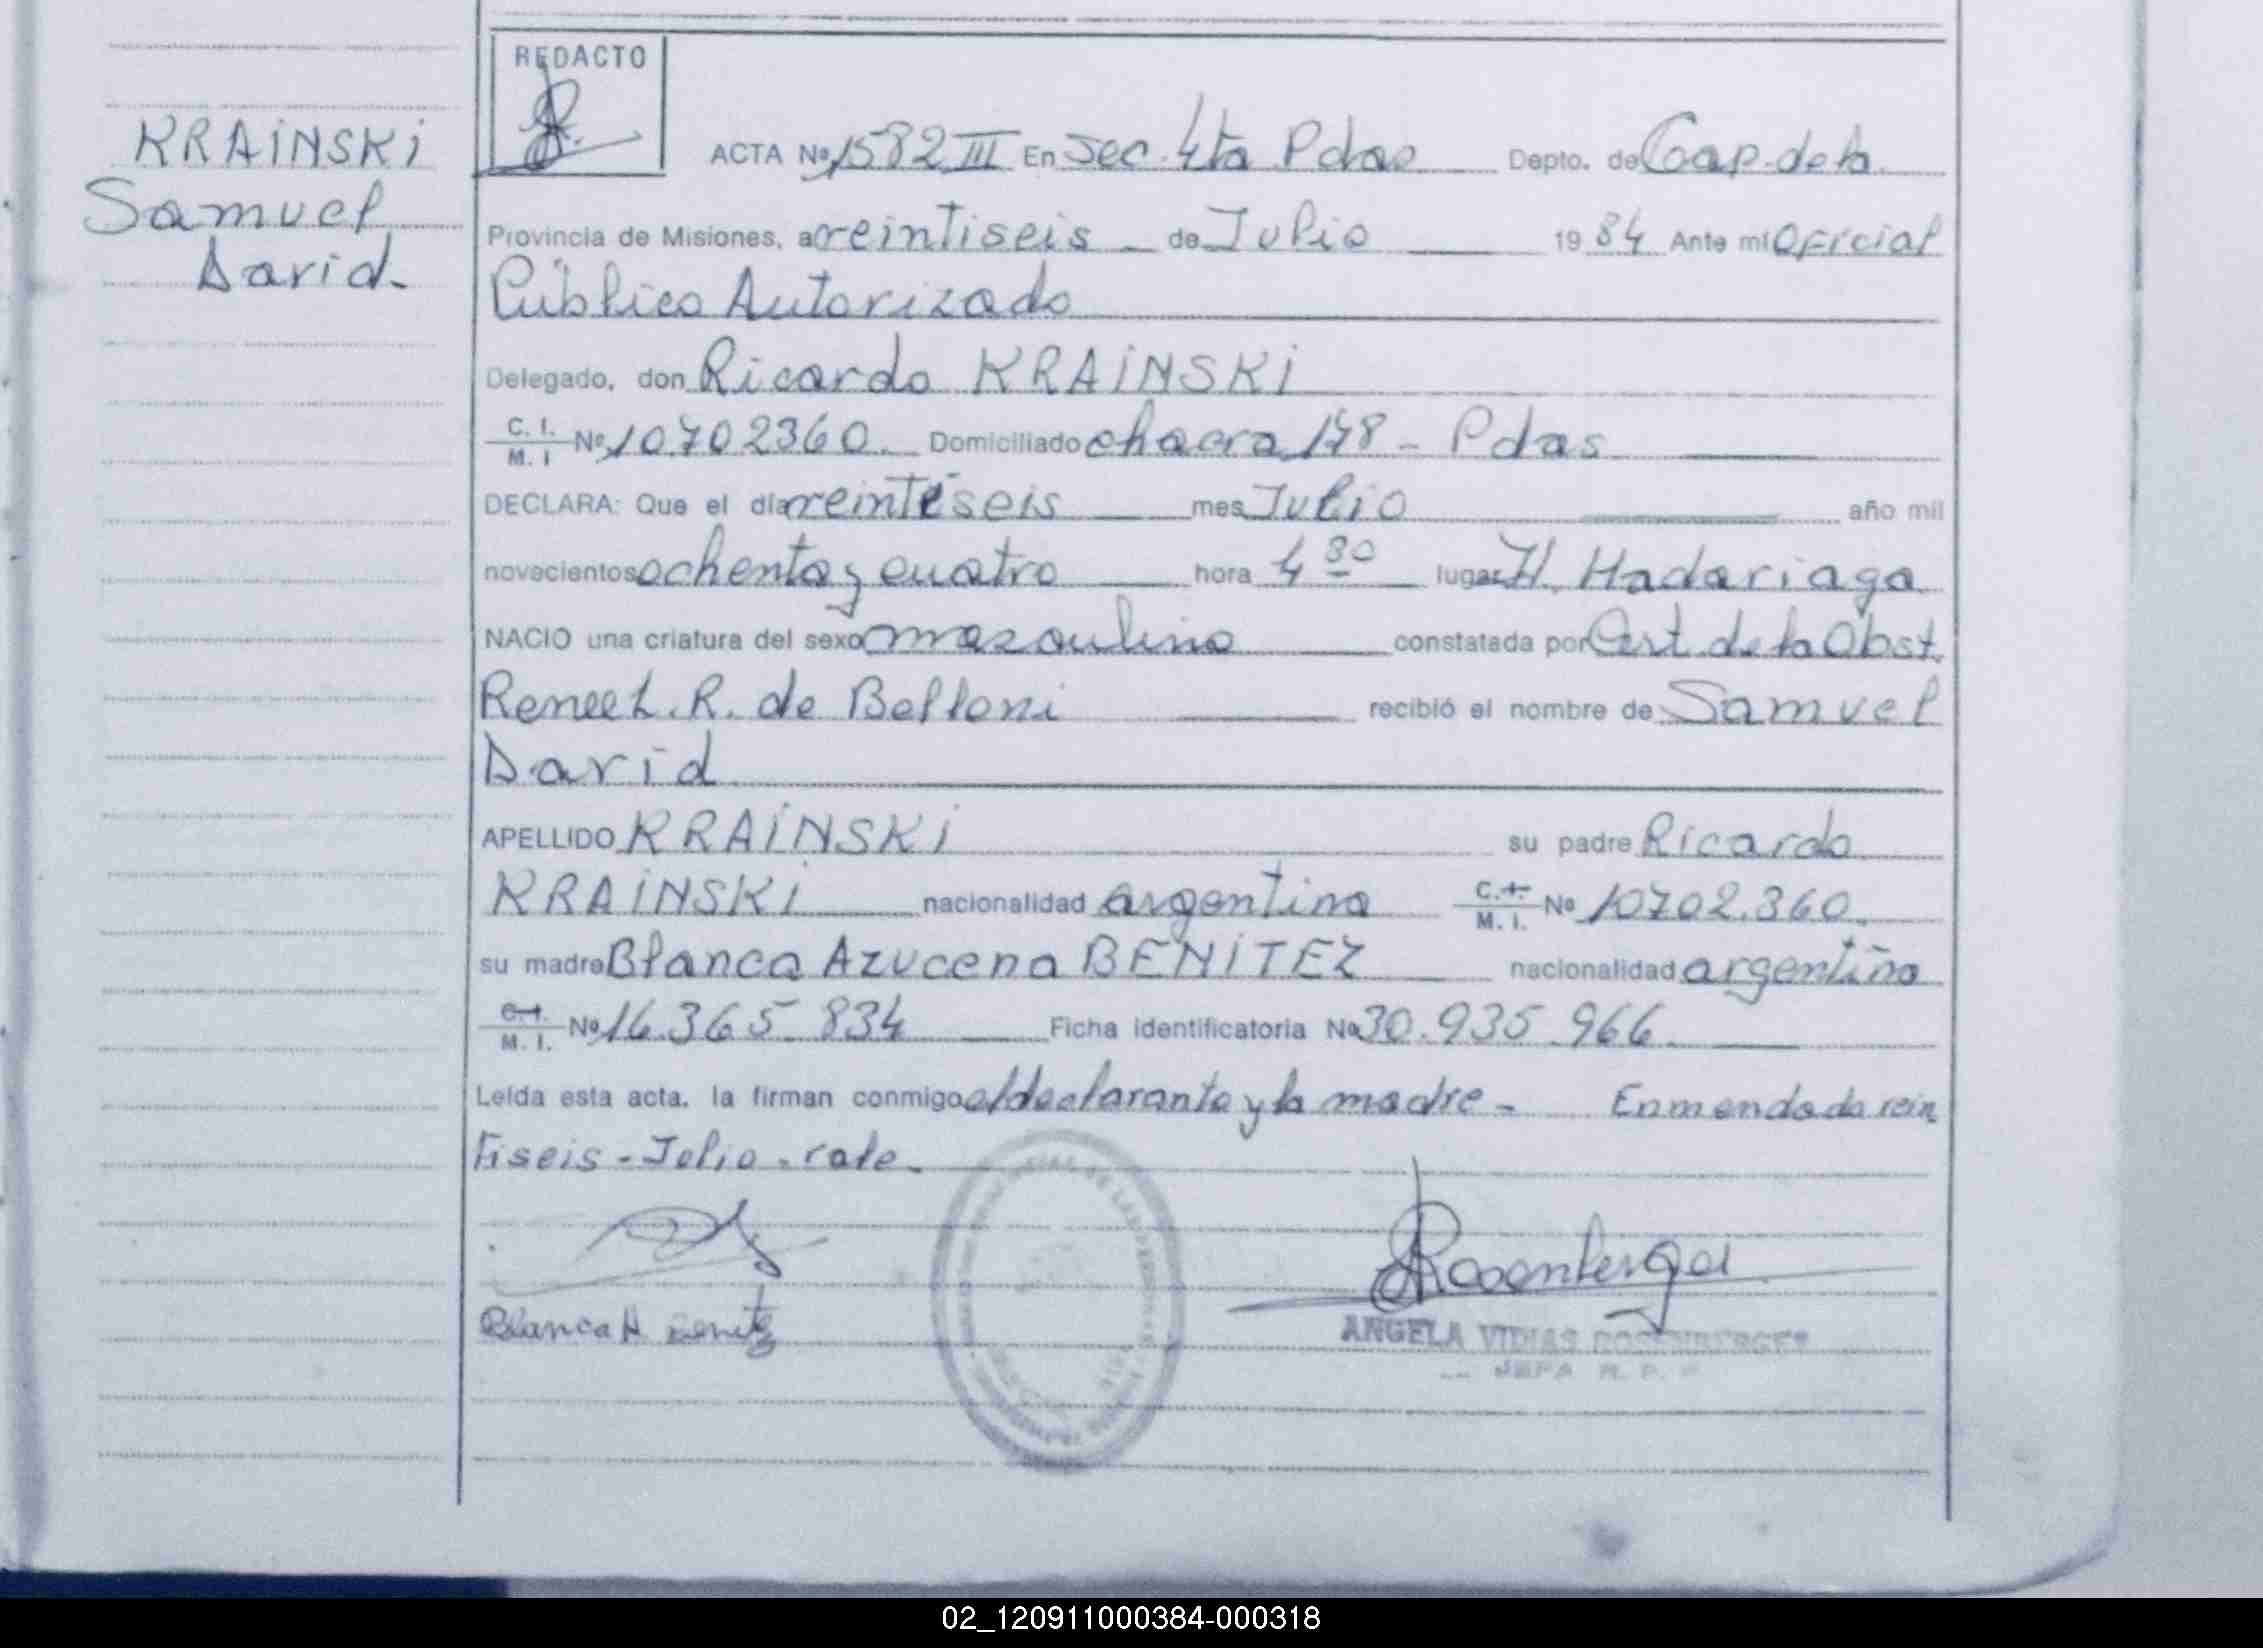 KRAINSKI
Samuel
David-
REDACTO
ACTA Nº 1582 III En Sec. 4ta Pdas Depto. de Cap. de la
Provincia de Misiones, a veintiseis de Julio 19 84 Ante mí Oficial
Público Autorizado
Delegado, don Ricardo KRAINSKI
C. I. / M. I Nº 10.702360. Domiciliado chacra 148 - Pdas
DECLARA: Que el día veintiseis mes Julio año mil
novecientos ochenta y cuatro hora 4 30 lugar H. Madariaga
NACIO una criatura del sexo masculino constatada por Cert. de la Obst.
Renee L. R. de Belloni recibió el nombre de Samuel
David
APELLIDO KRAINSKI su padre Ricardo
KRAINSKI nacionalidad argentina C. I. / M. I. Nº 10702.360.
su madre Blanca Azucena BENITEZ nacionalidad argentina
C. I. / M. I. Nº 16.365.834 Ficha identificatoria Nº 30.935.966
Leída esta acta. la firman conmigo el declarante y la madre - Enmendado vein
tiseis - Julio - vale -
Rosenberger
Blanca A. Benitez
ANGELA VIDIAS ROSENBERGER
JEFA R. P.
02_120911000384-000318